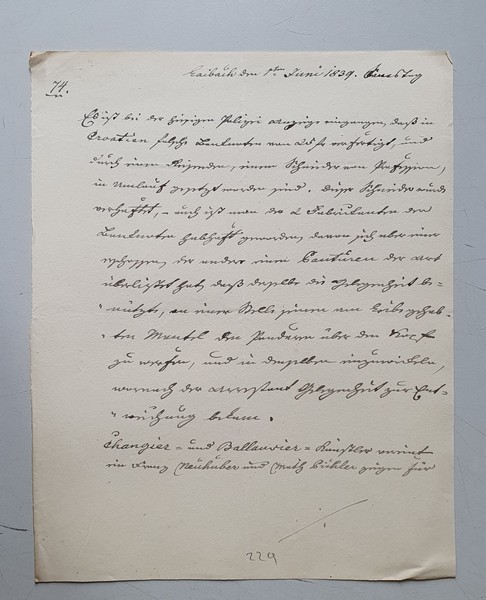 74.
Laibach den 1ten Juni 1839. Samstag
Es ist bei der hiesigen Polizei Anzeige eingegangen, daß in
Croatien falsche Banknoten von 25 fr verfertigt, und
durch einen Reisenden, einem Schneider von Profession,
in Umlauf gesetzt worden sind. Dieser Schneider wurde
verhaftet, – auch ist man der 2 Fabrikanten der
Banknoten habhaft geworden, davon sich aber einer
erschossen, der andere einen Panduren der Art
überlistet hat, daß derselbe die Gelegenheit be-
" nützte, an einer Stelle seinen am Leibe gehab-
" ten Mantel dem Panduren über den Kopf
zu werfen, und in denselben einzuwickeln,
wornach der Arrestant Gelegenheit zur Ent-
" weichung bekam.
Changier = und Ballancier = Künstler
ein Franz Neuhuber und Math Bichler zeigen für
229